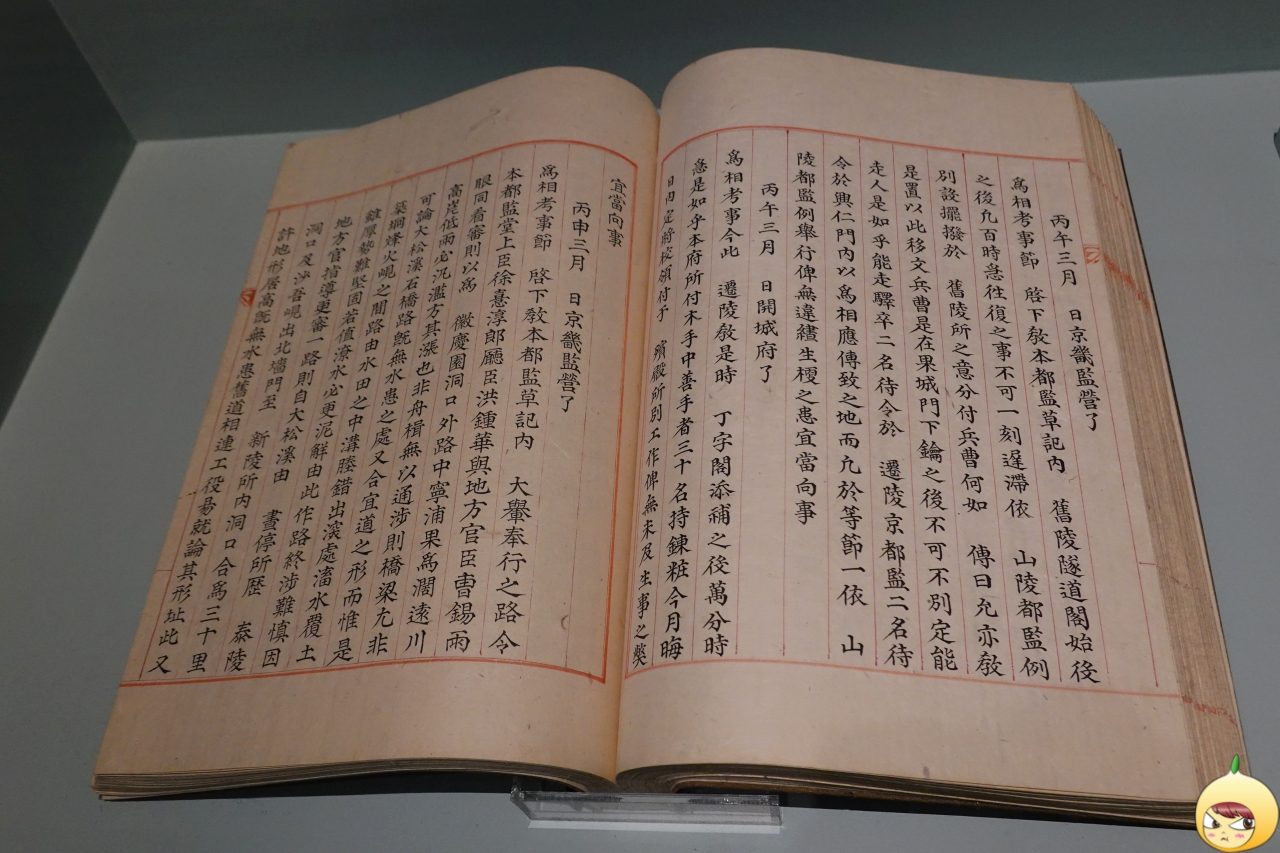 丙午三月　日京畿監營了
爲相考事節　啓下敎本都監草記內　舊陵隧道閣始後
之後凡百時急徃復之事不可一刻遲滯依　山陵都監例
別設擺撥於　舊陵所之意分付兵曹何如　傳曰允亦敎
是置以此移文兵曹是在果城門下鑰之後不可不別定能
走人是如乎能走驛卒二名待令於　遷陵京都監二名待
令於興仁門內以爲相應傳致之地而凡於等節一依　山
陵都監例舉行俾無違𨈓生梗之患宜當向事
丙午三月　日開城府了
爲相考事今此　遷陵敎是時　丁字閣添補之後萬分時
急是如乎本府所付木手中善手者三十名持鍊粧今月晦
日內定將校領付于　殯殿所別工作俾無未及生事之獘
宜當向事
丙申三月　日京畿監營了
爲相考事節　啓下敎本都監草記內　大轝奉行之路今
本都監堂上臣徐憙淳郎廳臣洪鍾華與地方官臣曺錫雨
眼同看審則以爲　徽慶園洞口外路中寧浦果爲濶遠川
高岸低雨必汎濫方其漲也非舟楫無以通涉則橋梁尤非
可論大松溪石橋路旣無水患之處又合宜道之形而惟是
築垌烽火峴之間路由水田之中溝塍錯出深處滀水覆土
雖厚勢難堅固若值潦水必更泥解由此作路終涉難愼因
地方官指導更審一路則自大松溪由　晝停所歷　泰陵
洞口及沙吾峴出北墻門至　新陵所內洞口合爲三十里
許地形居高旣無水患舊道相連工役易就論其形址此又